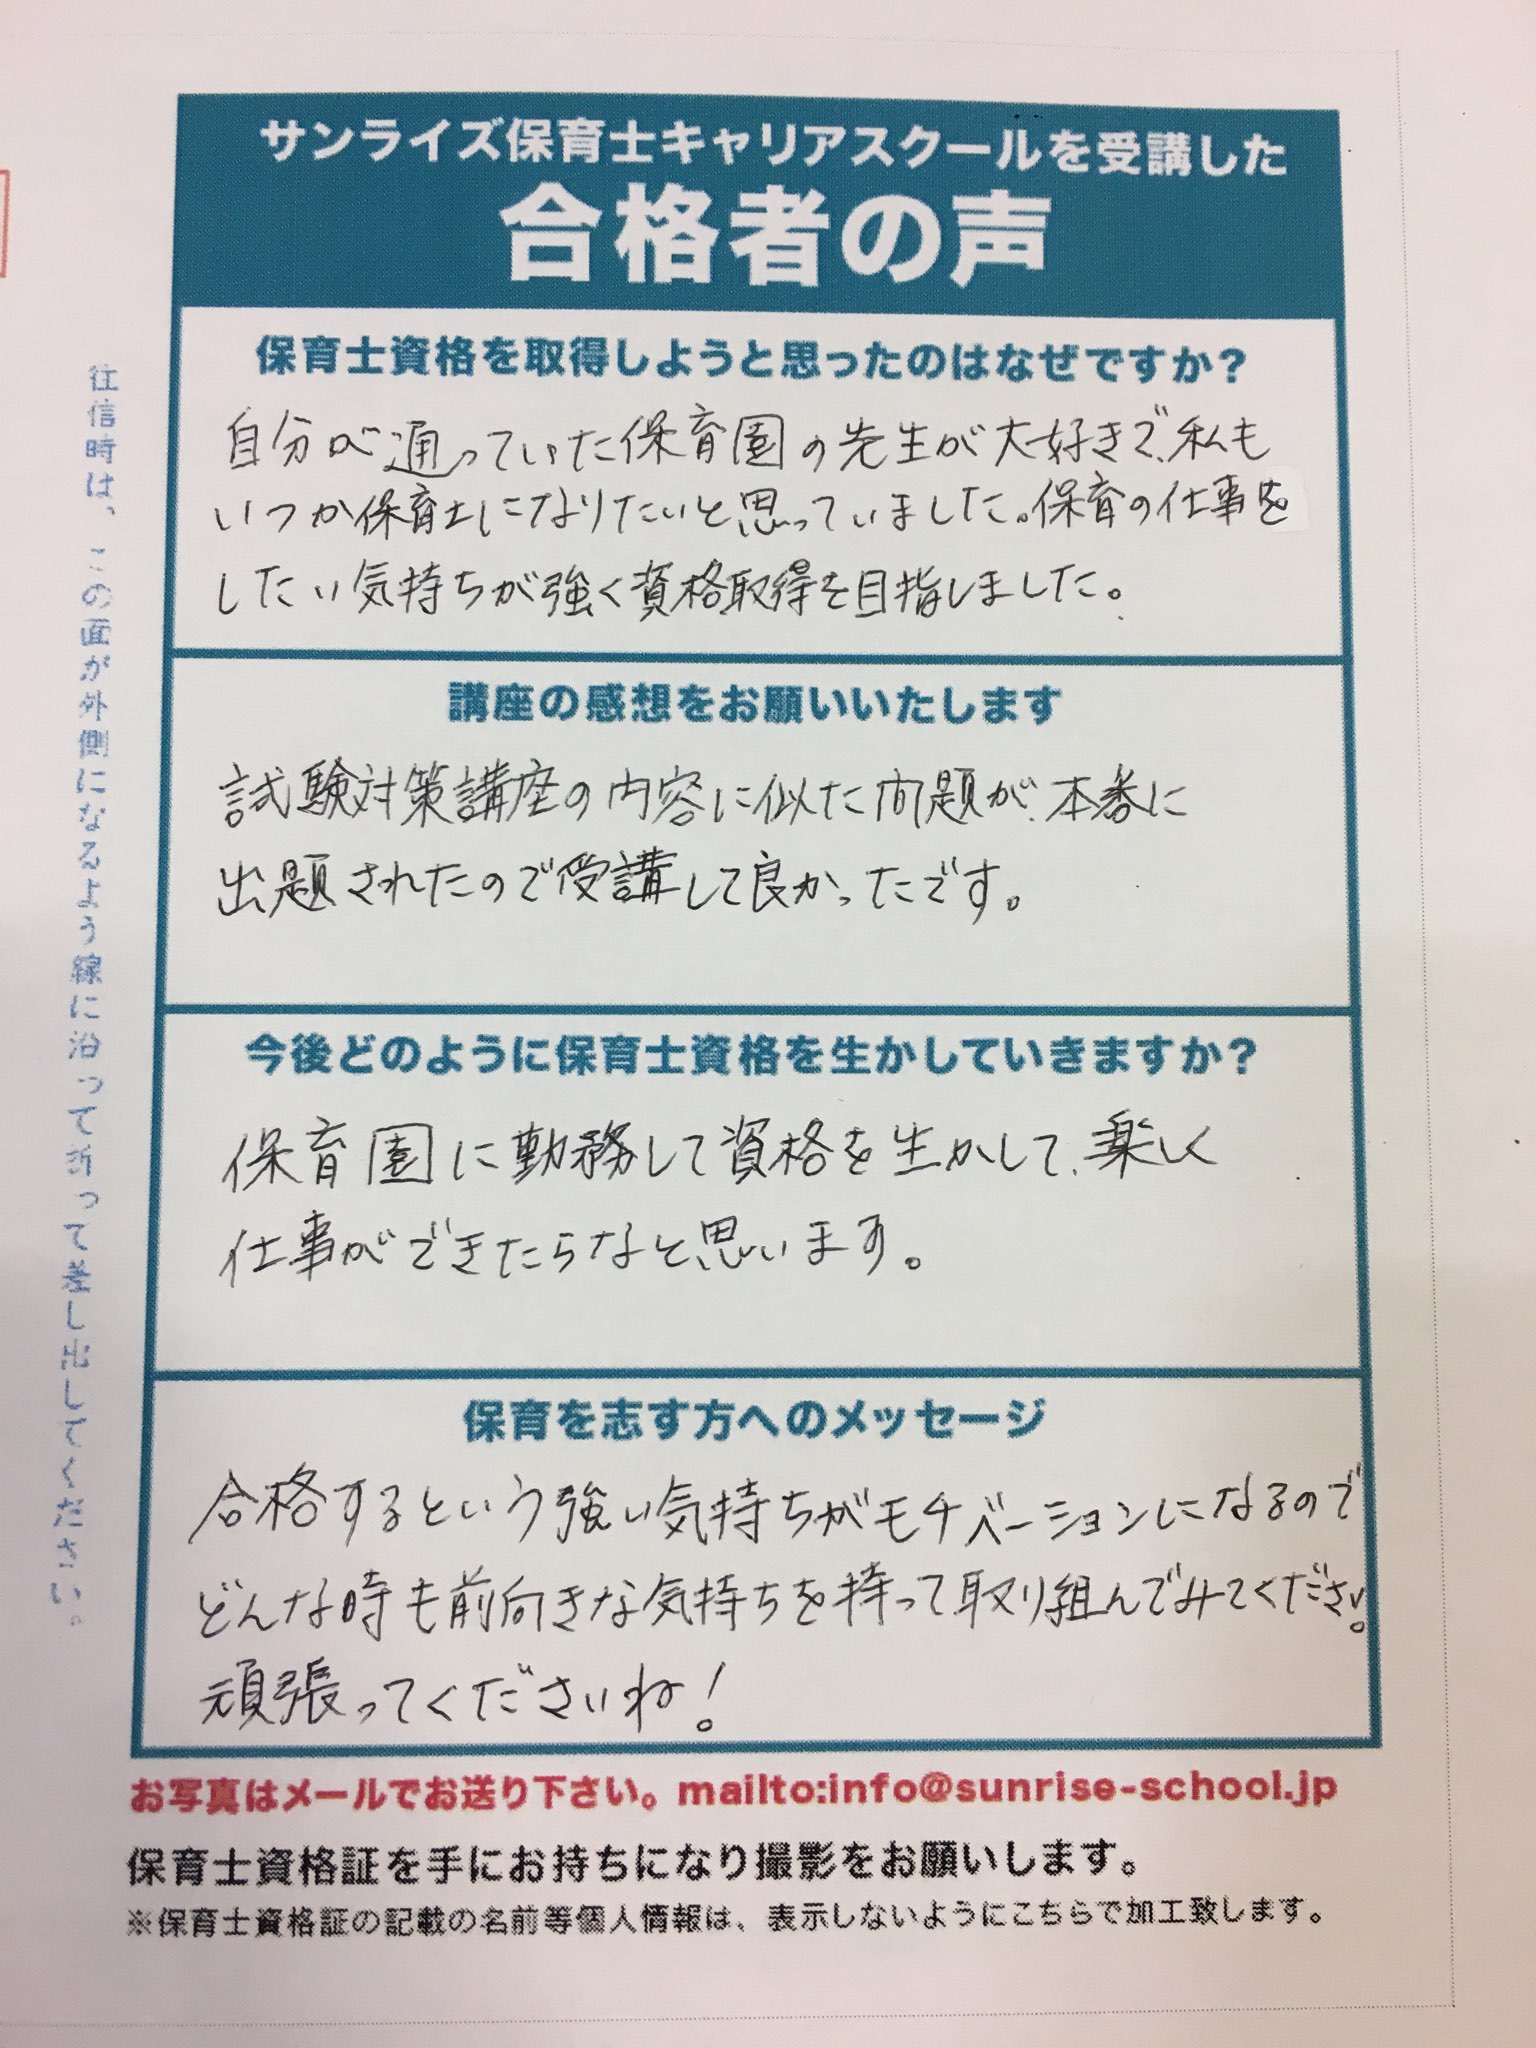 サンライズ保育士キャリアスクールを受講した
合格者の声
保育士資格を取得しようと思ったのはなぜですか？
自分が通っていた保育園の先生が大好きで、私も
いつか保育士になりたいと思っていました。保育の仕事を
したい気持ちが強く資格取得を目指しました。
講座の感想をお願いいたします
試験対策講座の内容に似た問題が、本番に
出題されたので受講して良かったです。
今後どのように保育士資格を生かしていきますか？
保育園に勤務して資格を生かして、楽しく
仕事ができたらなと思います。
保育を志す方へのメッセージ
合格するという強い気持ちがモチベーションになるので
どんな時も前向きな気持ちを持って取り組んでみてください。
頑張ってくださいね！
お写真はメールでお送り下さい。mailto:info@sunrise-school.jp
保育士資格証を手にお持ちになり撮影をお願いします。
※保育士資格証の記載の名前等個人情報は、表示しないようにこちらで加工致します。
往信時は、この面が外側になるよう線に沿って折って差し出してください。